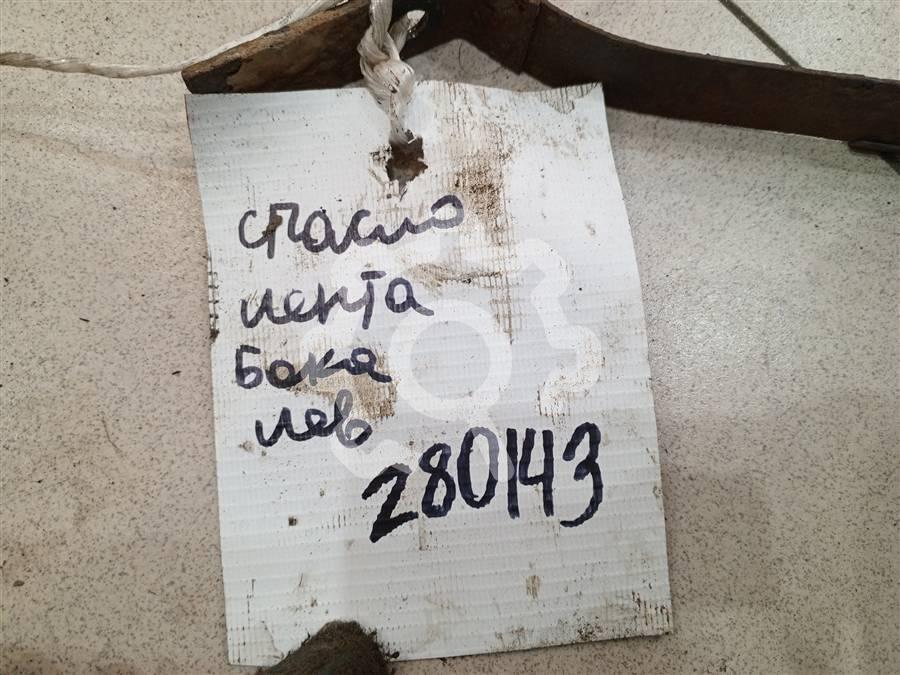 спасио
лента
бака
лев
280143